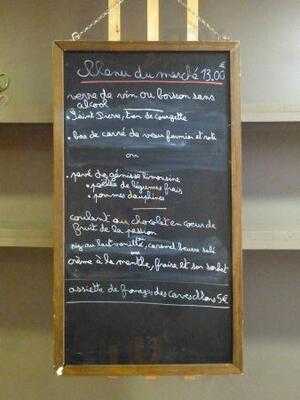 Menu du marché 13,00 €
verre de vin ou boisson sans
alcool
• Saint Pierre, de courgette
• bas de carré de veau fermier et rote
ou
• pavé de génisse limousine
• poélée de légumes frais
• pommes dauphines
coulant au chocolat en cœur de
fruit de la passion
riz au lait vanille, caramel beurre salé
ou
crème à la menthe, fraise et son sorbet
assiette de fromages des caves 5€